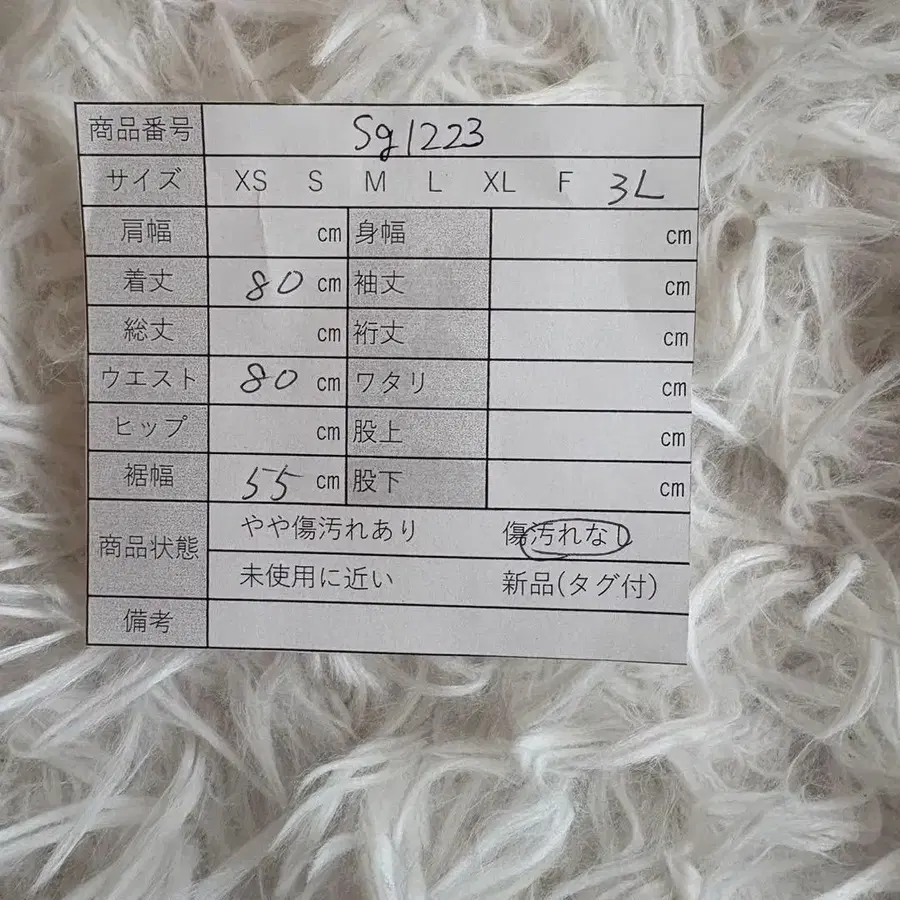 商品番号 Sg1223
サイズ XS S M L XL F 3L
肩幅 cm 身幅 cm
着丈 80 cm 袖丈 cm
総丈 cm 裄丈 cm
ウエスト 80 cm ワタリ cm
ヒップ cm 股上 cm
裾幅 55 cm 股下 cm
商品状態 やや傷汚れあり 傷汚れなし
未使用に近い 新品(タグ付)
備考